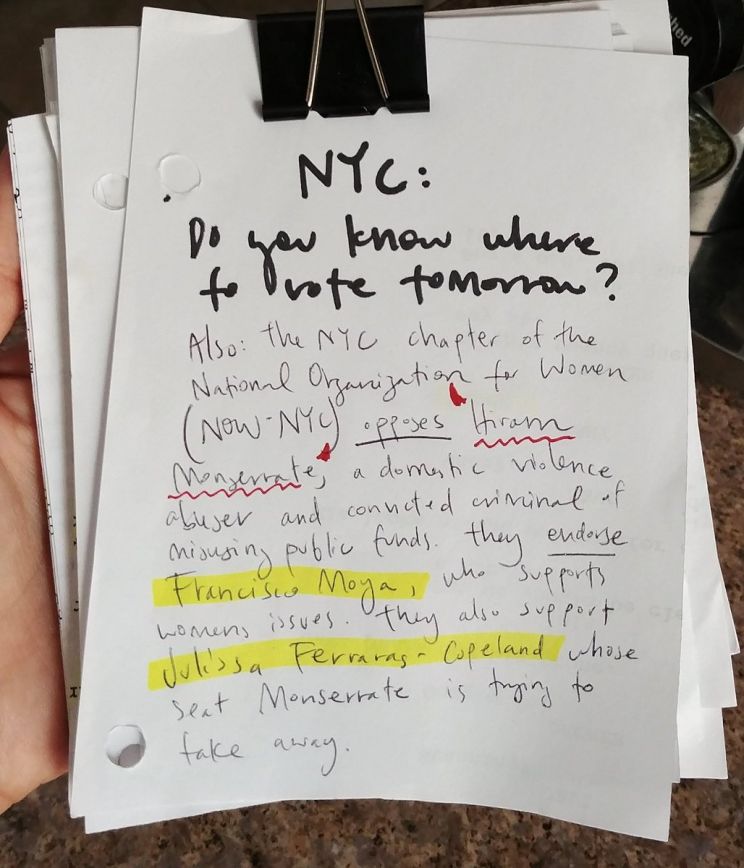 NYC:
Do you know where
to vote tomorrow?
Also: the NYC chapter of the
National Organization for Women
(NOW-NYC) opposes Hiram
Monserrate, a domestic violence
abuser and convicted criminal of
misusing public funds. they endorse
Francisco Moya, who supports
womens issues. they also support
Julissa Ferraras-Copeland whose
seat Monserrate is trying to
take away.